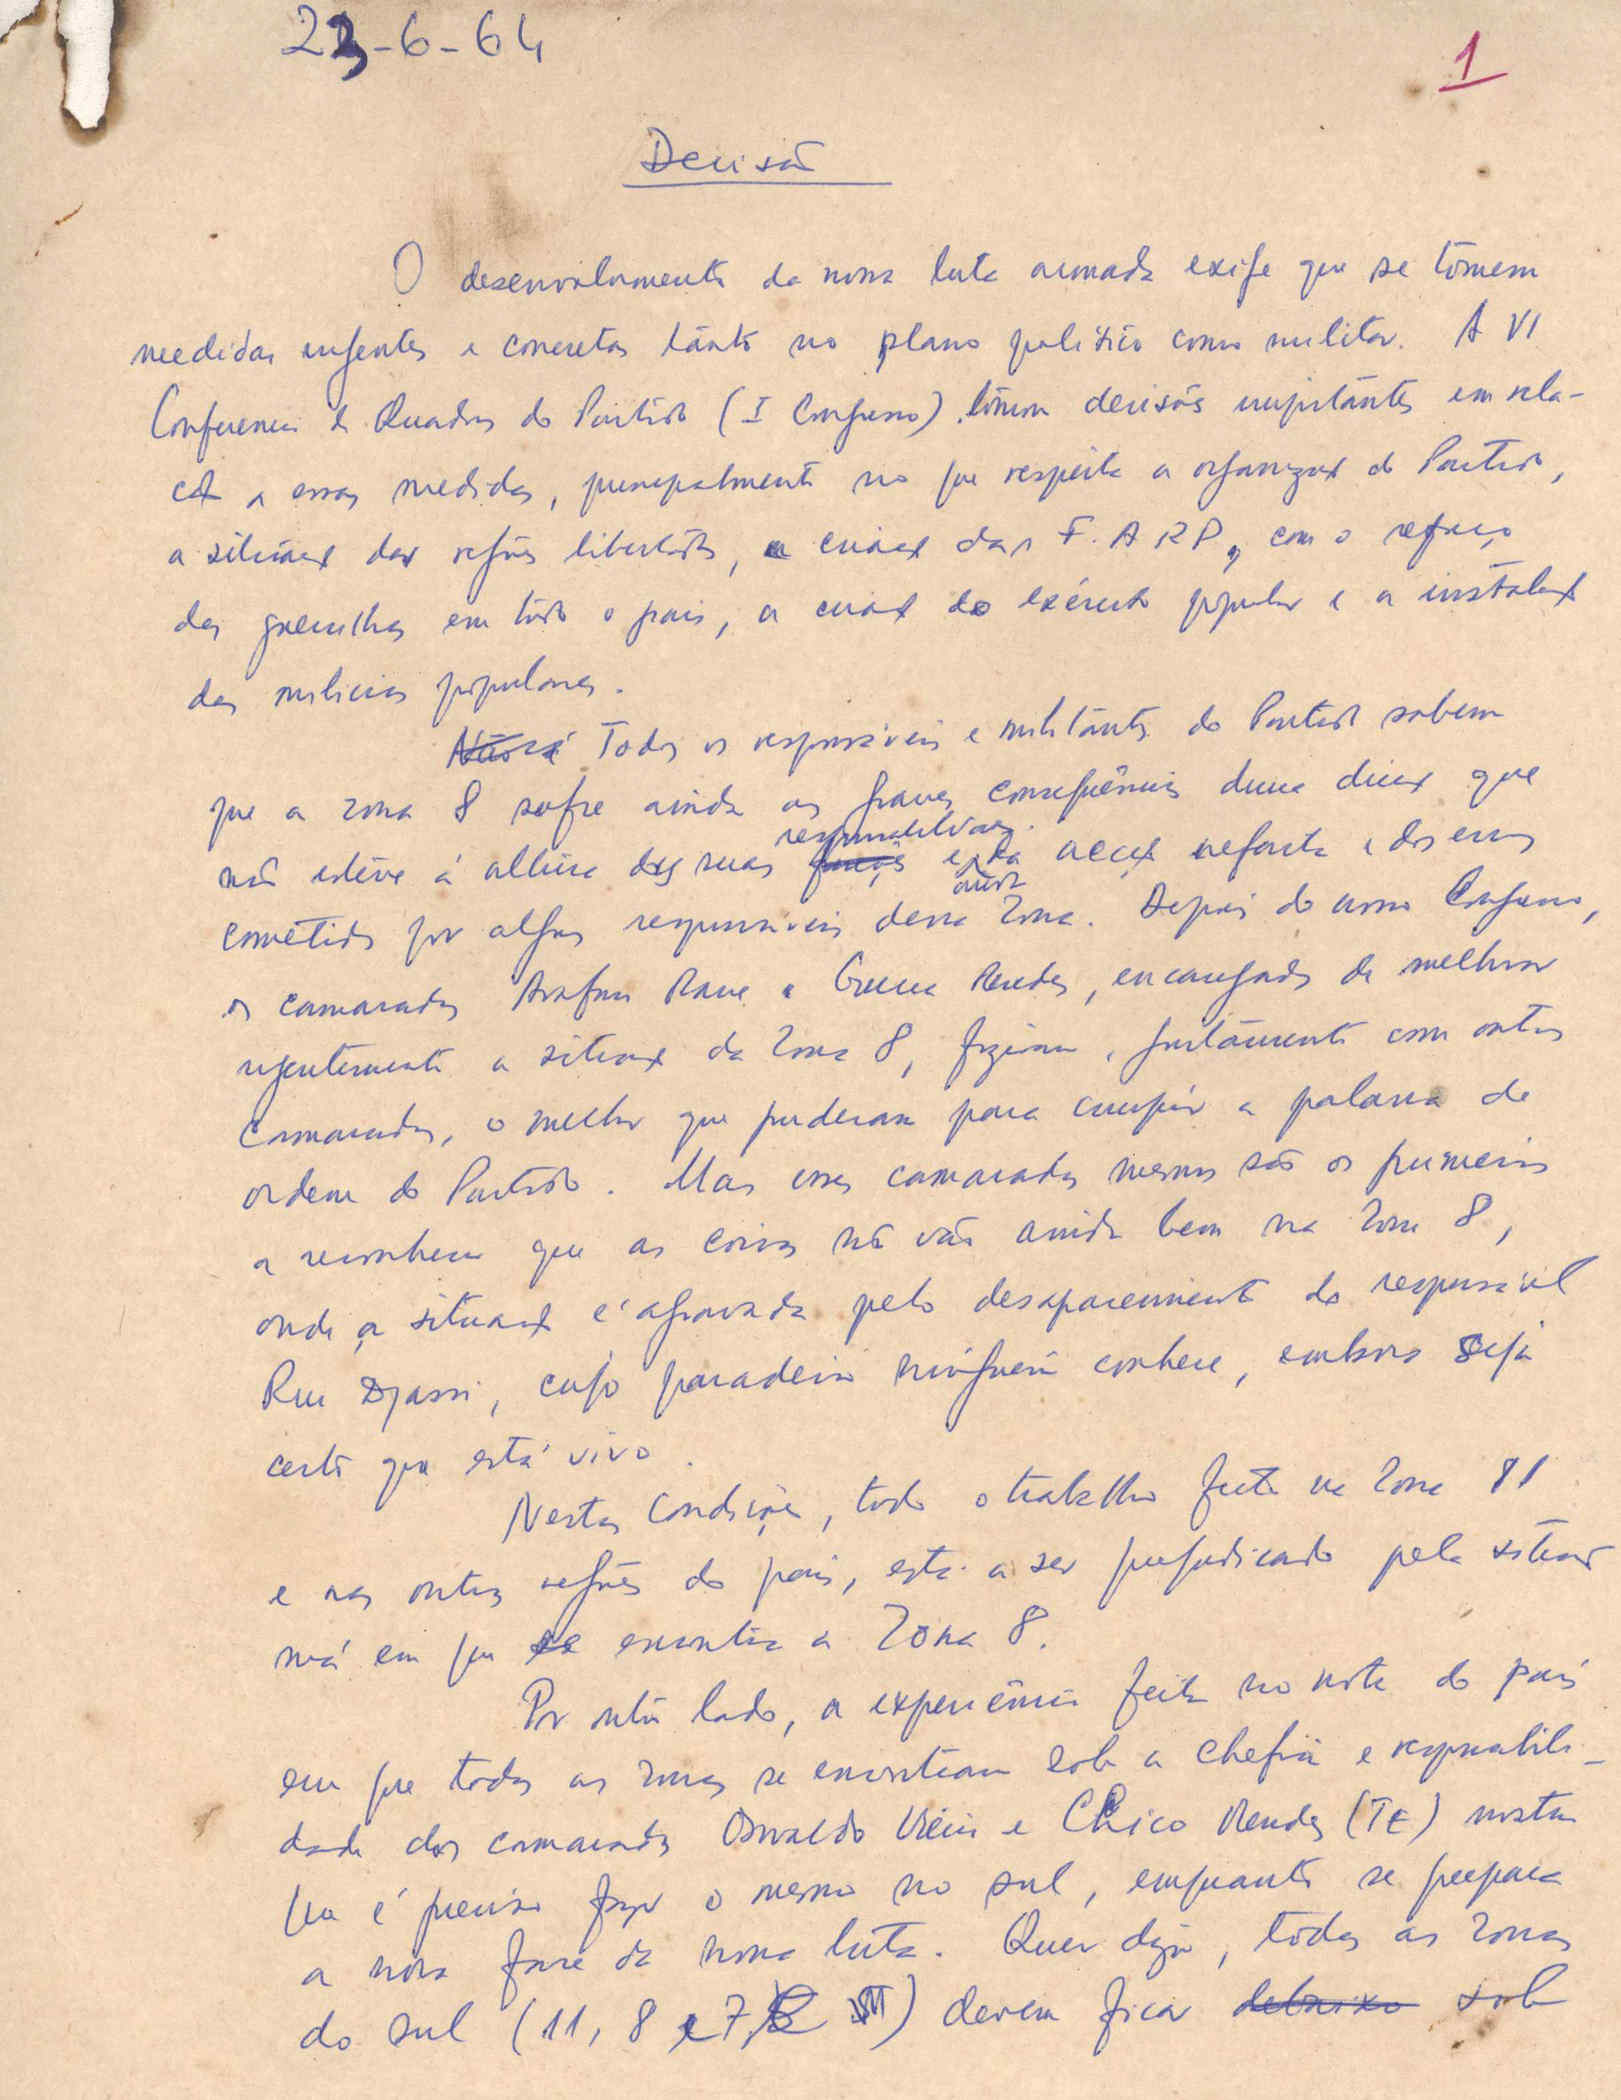 23-6-64
1
Decisão
O desenvolvimento da nossa luta armada exige que se tomem
medidas urgentes e concretas tanto no plano politico como militar. A VI
Conferencia de Quadros do Partido (I Congresso) tomou decisões importantes em rela-
ção a essas medidas, principalmente no que respeita a organização do Partido,
a situação das regiões libertadas, a criação das F.ARP, com o reforço
das guerrilhas em todo o país, a criação do exército popular e a instalação
das milicias populares.
Todos os responsáveis e militantes do Partido sabem
que a zona 8 sofre ainda as graves consequências duma direcção que
não esteve á altura das suas responsabilidades e da acção nefasta e dos erros
cometidos por alguns responsáveis dessa zona. Depois do nosso Congresso,
os camaradas Arafam Mane e Guerra Mendes, encarregados de melhorar
urgentemente a situação da Zona 8, fizeram, juntamente com outros
camaradas, o melhor que puderam para cumprir a palavra de
ordem do Partido. Mas esses camaradas mesmos são os primeiros
a reconhecer que as coisas não vão ainda bem na Zona 8,
onde a situação é agravada pelo desaparecimento do responsável
Rui Djassi, cujo paradeiro ninguém conhece, embora seja
certo que está vivo.
Nestas condições, todo o trabalho feito na Zona 11
e nas outras regiões do país, está a ser prejudicado pela situação
má em que se encontra a Zona 8.
Por outro lado, a experiência feita no norte do país
em que todas as zonas se encontram sob a chefia e responsabili-
dade dos camaradas Osvaldo Vieira e Chico Mendes (TE) mostra
que é preciso fazer o mesmo no sul, enquanto se prepara
a nova fase da nossa luta. Quer dizer, todas as zonas
do sul (11, 8 e 7) devem ficar debaixo sob